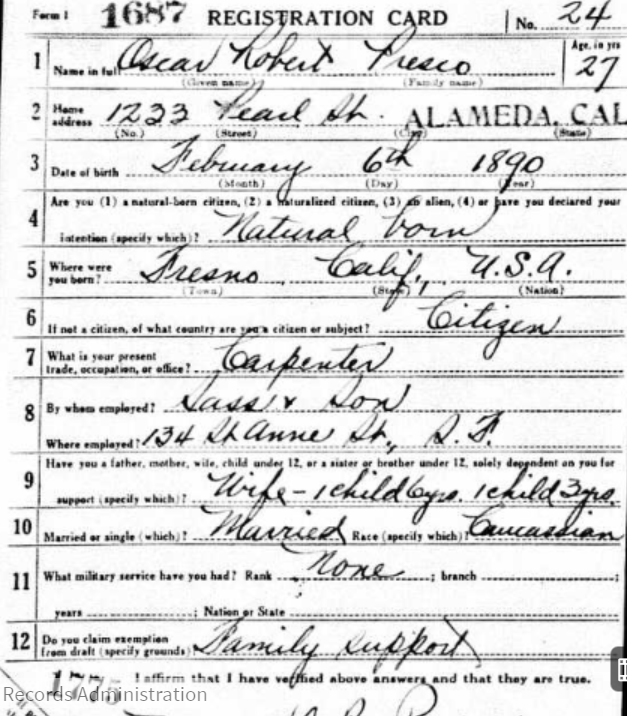 Form 1 1687 REGISTRATION CARD No. 24
1 Name in full Oscar Robert Presco Age, in yrs 27
(Given name) (Family name)
2 Home address 1233 Pearl St. ALAMEDA, CAL
(No.) (Street) (City) (State)
3 Date of birth February 6th 1890
(Month) (Day) (Year)
4 Are you (1) a natural-born citizen, (2) a naturalized citizen, (3) an alien, (4) or have you declared your
intention (specify which)? Natural born
5 Where were you born? Fresno, Calif, U.S.A.
(Town) (State) (Nation)
6 If not a citizen, of what country are you a citizen or subject? Citizen
7 What is your present trade, occupation, or office? Carpenter
8 By whom employed? Sass & Son
Where employed? 134 St Anne St., S.F.
9 Have you a father, mother, wife, child under 12, or a sister or brother under 12, solely dependent on you for
support (specify which)? Wife - 1 child 6 yrs. 1 child 3 yrs.
10 Married or single (which)? Married Race (specify which)? Caucassian
11 What military service have you had? Rank None ; branch ;
years ; Nation or State
12 Do you claim exemption from draft (specify grounds) Family support
I affirm that I have verified above answers and that they are true.
Records Administration